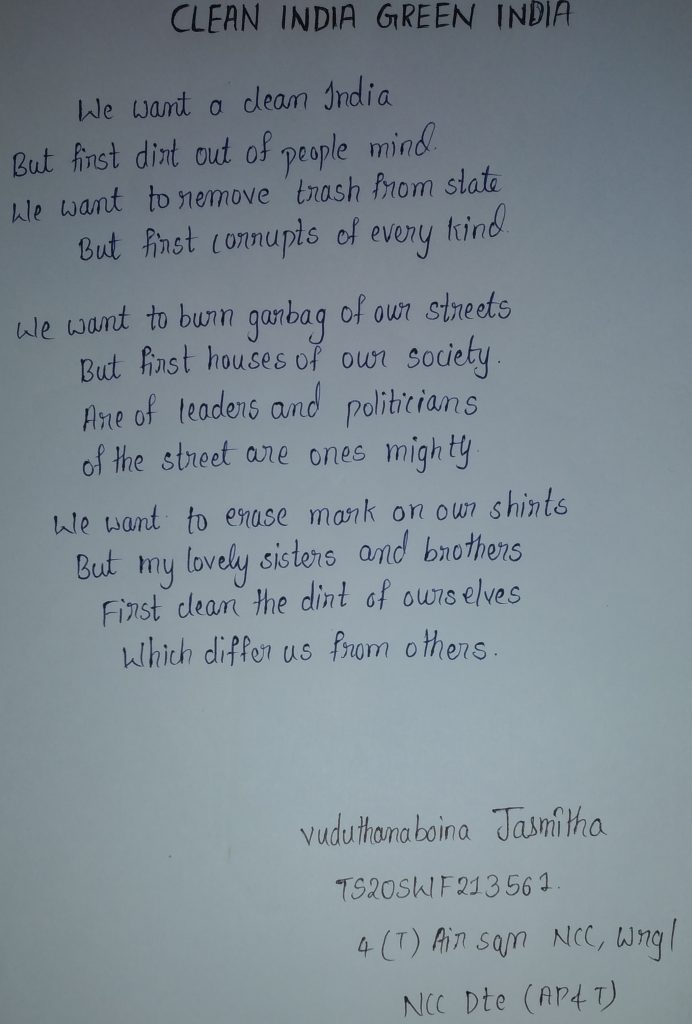 CLEAN INDIA GREEN INDIA
We want a clean India
But first dirt out of people mind.
We want to remove trash from state
But first corrupts of every kind.
We want to burn garbag of our streets
But first houses of our society.
Are of leaders and politicians
of the street are ones mighty.
We want to erase mark on our shirts
But my lovely sisters and brothers
First clean the dirt of ourselves
Which differ us from others.
Vuduthanaboina Jasmitha
TS20SWF213561.
4 (T) Air sqn NCC, Wrgl
NCC Dte (AP&T)